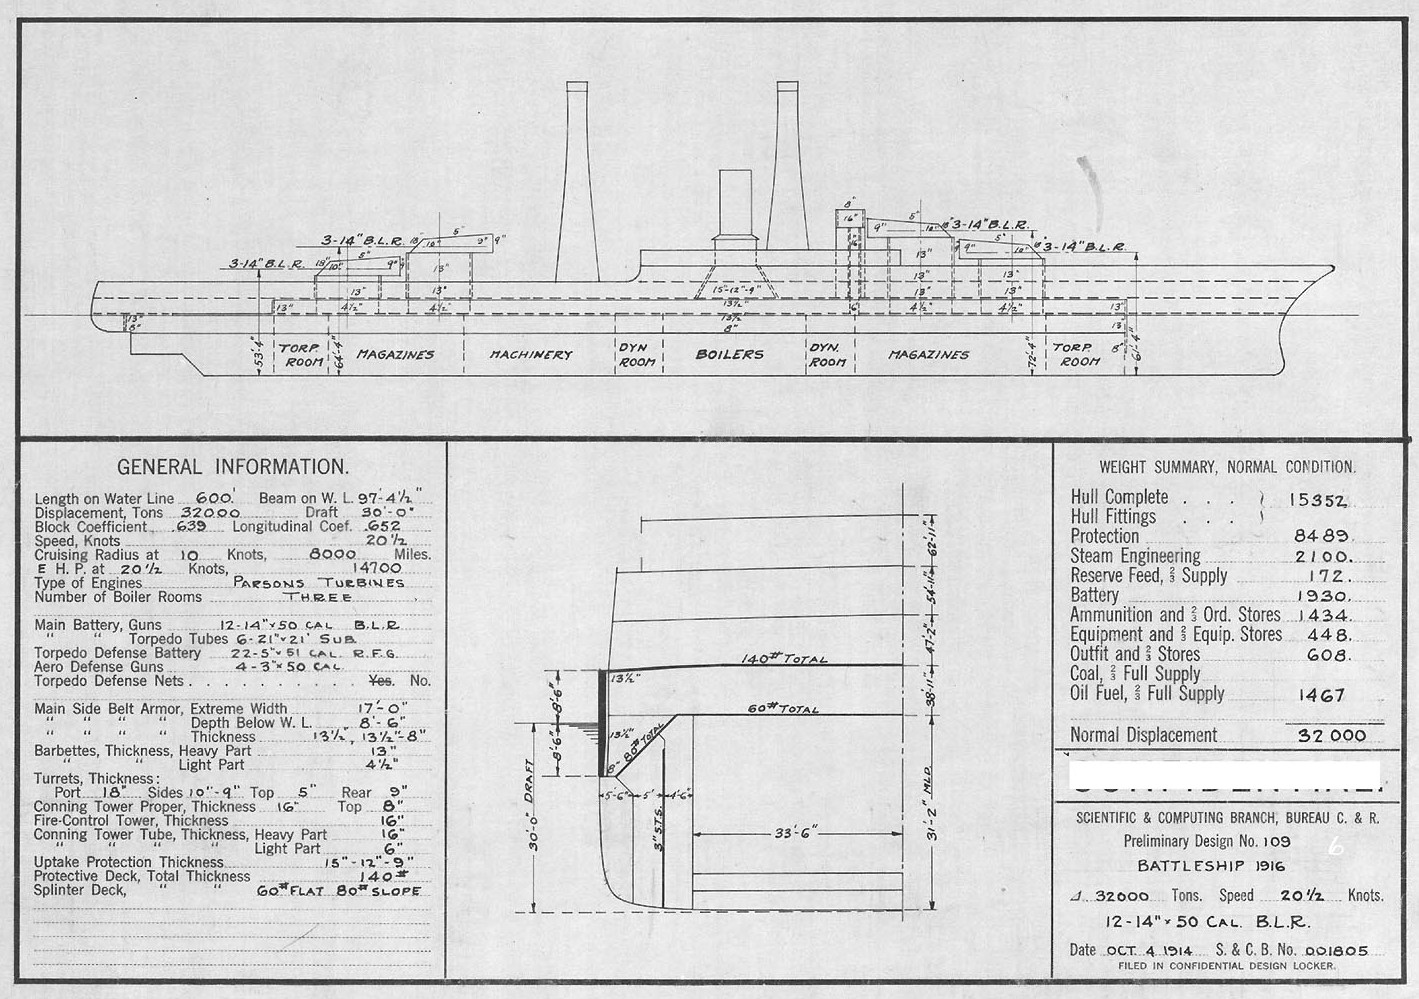 8"
16"
16"
5"
9"
18"
10"
3-14" B.L.R.
5"
10"
18"
3-14" B.L.R.
3-14" B.L.R.
18"
10"
5"
9"
9"
3-14" B.L.R.
18"
10"
5"
9"
13"
13"
13"
13"
13"
13"
13"
13"
15"-12"-9"
13½"
13"
4½"
4½"
6"
4½"
4½"
13"
13"
8"
13½"
8"
13"
8"
53'-4"
64'-4"
72'-4"
61'-4"
TORP. ROOM
MAGAZINES
MACHINERY
DYN ROOM
BOILERS
DYN. ROOM
MAGAZINES
TORP. ROOM
GENERAL INFORMATION.
Length on Water Line 600' Beam on W. L. 97'-4½"
Displacement, Tons 32000 Draft 30'-0"
Block Coefficient .639 Longitudinal Coef. .652
Speed, Knots 20½
Cruising Radius at 10 Knots, 8000 Miles.
E H. P. at 20½ Knots, 14700
Type of Engines PARSONS TURBINES
Number of Boiler Rooms THREE
Main Battery, Guns 12-14"x50 CAL B.L.R.
" " Torpedo Tubes 6-21"x21' SUB.
Torpedo Defense Battery 22-5"x51 CAL. R.F.G.
Aero Defense Guns 4-3"x50 CAL.
Torpedo Defense Nets . . . . . . . . . Yes. No.
Main Side Belt Armor, Extreme Width 17'-0"
" " " " Depth Below W. L. 8'-6"
" " " " Thickness 13½", 13½"-8"
Barbettes, Thickness, Heavy Part 13"
" Light Part 4½"
Turrets, Thickness:
Port 18" Sides 10"-9" Top 5" Rear 9"
Conning Tower Proper, Thickness 16" Top 8"
Fire-Control Tower, Thickness 16"
Conning Tower Tube, Thickness, Heavy Part 16"
" " " " Light Part 6"
Uptake Protection Thickness 15"-12"-9"
Protective Deck, Total Thickness 140#
Splinter Deck, " " 60# FLAT 80# SLOPE
62'-11"
54'-11"
47'-2"
140# TOTAL
38'-11"
13½"
8'-6"
60# TOTAL
8'-6"
13½"
80# TOTAL
8"
5'-6"
5'
4'-6"
30'-0" DRAFT
3" S.T.S.
33'-6"
31'-2" MLD.
WEIGHT SUMMARY, NORMAL CONDITION.
Hull Complete . . . } 15352
Hull Fittings . . .
Protection 8489.
Steam Engineering 2100.
Reserve Feed, ⅔ Supply 172.
Battery 1930.
Ammunition and ⅔ Ord. Stores 1434.
Equipment and ⅔ Equip. Stores 448.
Outfit and ⅔ Stores 608.
Coal, ⅔ Full Supply
Oil Fuel, ⅔ Full Supply 1467
Normal Displacement 32000
SCIENTIFIC & COMPUTING BRANCH, BUREAU C. & R.
Preliminary Design No. 109 6
BATTLESHIP 1916
⊿ 32000 Tons. Speed 20½ Knots.
12-14"x50 CAL. B.L.R.
Date OCT. 4 1914 S. & C. B. No. 001805
FILED IN CONFIDENTIAL DESIGN LOCKER.